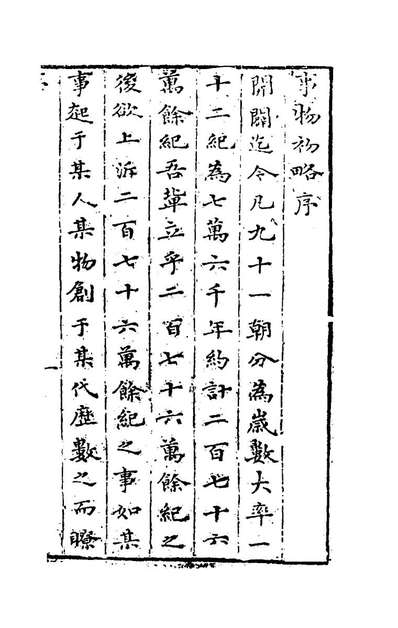 事物初略序
開闢迄今凡九十一朝分為歲數大率一
十二紀為七萬六千年約計二百七十六
萬餘紀吾輩立乎二百七十六萬餘紀之
後欲上泝二百七十六萬餘紀之事如某
事起于某人某物創于某代歷數之而瞭